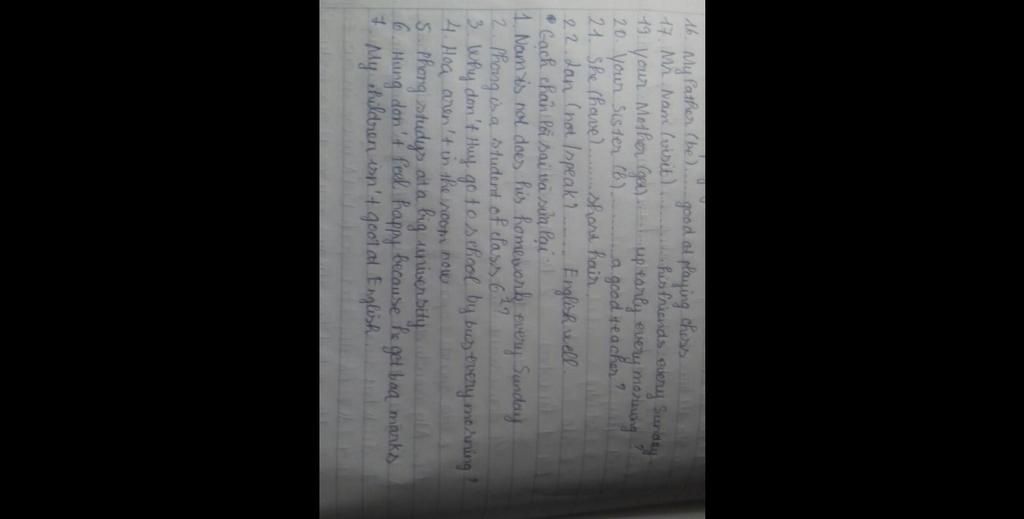 16. My father (be).....good at playing chess
17. Mr Nam (visit)..........his friends every Sunday
19. Your Mother (get).......up early every morning?
20. Your sister (be)..........a good teacher?
21. She (have)..........short hair
22. Lan (not/speak)........English well
• Gạch chân lỗi sai và sửa lại:
1. Nam is not does his homework every Sunday
2. Phong is a student of class 6
3. Why don't Huy go to school by bus every morning?
4. Hoa aren't in the room now
5. Phong studys at a big university
6. Hung don't feel happy because he get bad marks
7. My children isn't good at English